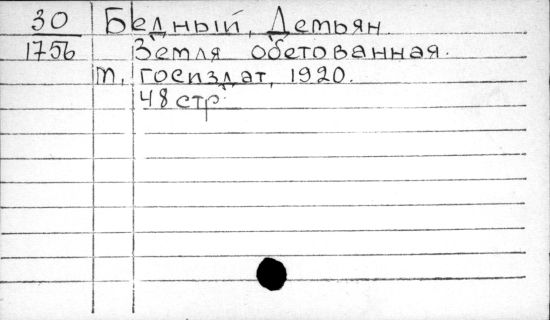 30 Бедный, Демьян.
1756 Земля обетованная.
М, Госиздат, 1920.
48 стр.